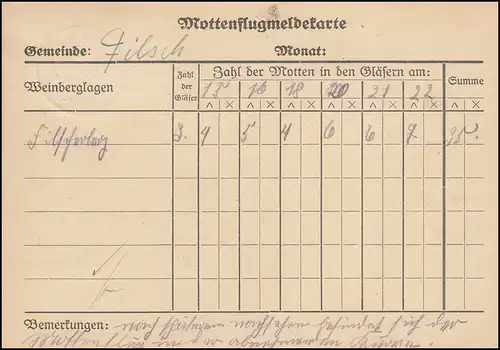 Mottenflugmeldekarte
Gemeinde: Filsch Monat:
Weinberglagen Zahl der Gläser Zahl der Motten in den Gläsern am: Summe
15 16 18 20 21 22
^ × ^ × ^ × ^ × ^ × ^ × ^ ×
Filscherberg 3. 4 5 4 6 6 7 35.
Bemerkungen: nach nachsehen befindet sich der
Mottenflug in der